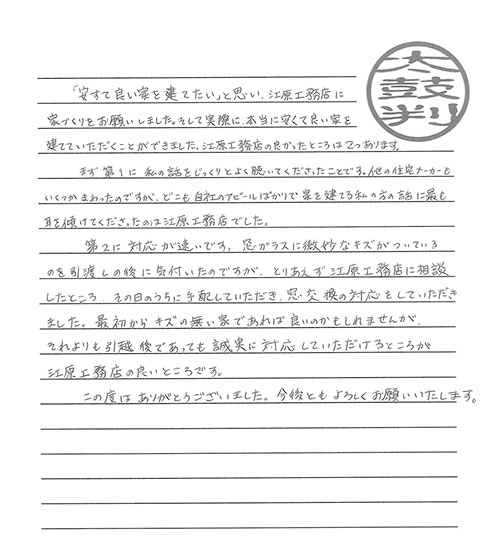 太鼓判
「安すて良い家を建てたい」と思い、江原工務店に
家づくりをお願いしました。そして実際に、本当に安くて良い家を
建てていただくことができました。江原工務店の良かったところは2つあります。
まず第1に 私の話をじっくりとよく聴いてくださったことです。他の住宅メーカーも
いくつかまわったのですが、どこも自社のアピールばかりで 家を建てる私の方の話に最も
耳を傾けてくださったのは江原工務店でした。
第2に 対応が速いです。窓ガラスに微妙なキズがついている
のを引渡しの後に気付いたのですが、とりあえず江原工務店に相談
したところ、その日のうちに手配していただき、窓交換の対応をしていただき
ました。最初からキズの無い家であれば良いのかもしれませんが、
それよりも引越後であっても誠実に対応していただけるところが
江原工務店の良いところです。
この度は ありがとうございました。今後とも よろしくお願いいたします。